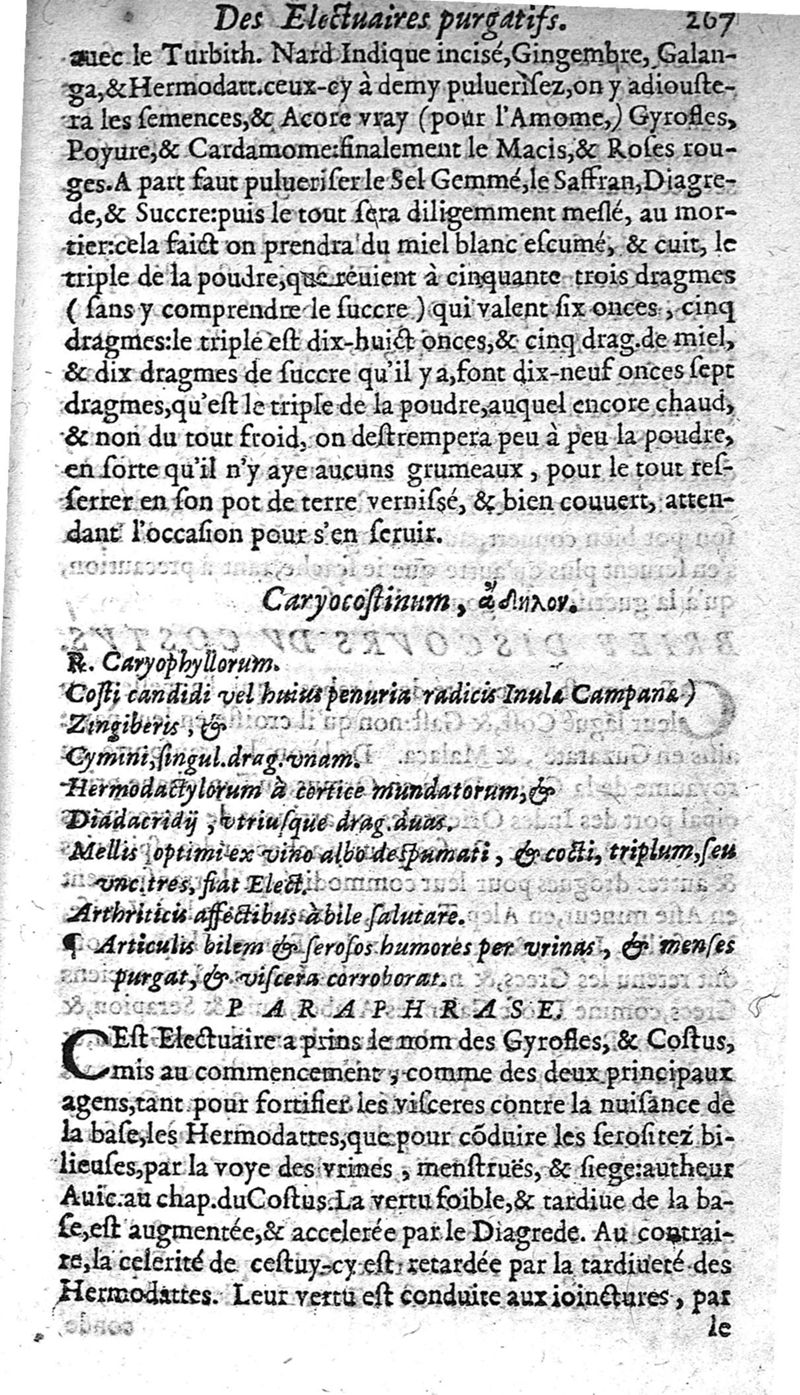 Des Electuaires purgatifs. 267
auec le Turbith. Nard Indique incisé, Gingembre, Galan-
ga, & Hermodatt. ceux-cy à demy puluerisez, on y adiouste-
ra les semences, & Acore vray (pour l'Amome,) Gyrofles,
Poyure, & Cardamome: finalement le Macis, & Roses rou-
ges. A part faut pulueriser le Sel Gemmé, le Saffran, Diagre-
de, & Succre: puis le tout sera diligemment meslé, au mor-
tier: cela faict on prendra du miel blanc escumé, & cuit, le
triple de la poudre, que reuient à cinquante trois dragmes
(sans y comprendre le succre) qui valent six onces, cinq
dragmes: le triple est dix-huict onces, & cinq drag. de miel,
& dix dragmes de succre qu'il y a, font dix-neuf onces sept
dragmes, qu'est le triple de la poudre, auquel encore chaud,
& non du tout froid, on destrempera peu à peu la poudre,
en sorte qu'il n'y aye aucuns grumeaux, pour le tout res-
serrer en son pot de terre vernissé, & bien couuert, atten-
dant l'occasion pour s'en seruir.
Caryocostinum, ἄδηλον.
℞. Caryophyllorum.
Costi candidi vel huius penuria radicis Inulæ Campanæ)
Zingiberis, &
Cymini, singul. drag. vnam.
Hermodactylorum à cortice mundatorum, &
Diadacridij, vtriusque drag. duas.
Mellis optimi ex vino albo despumati, & cocti, triplum, seu
vnc. tres, fiat Elect.
Arthriticis affectibus à bile salutare.
¶ Articulis bilem & serosos humores per vrinas, & menses
purgat, & viscera corroborat.
PARAPHRASE.
CEst Electuaire a prins le nom des Gyrofles, & Costus,
mis au commencement, comme des deux principaux
agens, tant pour fortifier les visceres contre la nuisance de
la base, les Hermodattes, que pour cōduire les serositez bi-
lieuses, par la voye des vrines, menstruës, & siege: autheur
Auic. au chap. du Costus. La vertu foible, & tardiue de la ba-
se, est augmentée, & accelerée par le Diagrede. Au contrai-
re, la celerité de cestuy-cy est retardée par la tardiueté des
Hermodattes. Leur vertu est conduite aux ioinctures, par
le